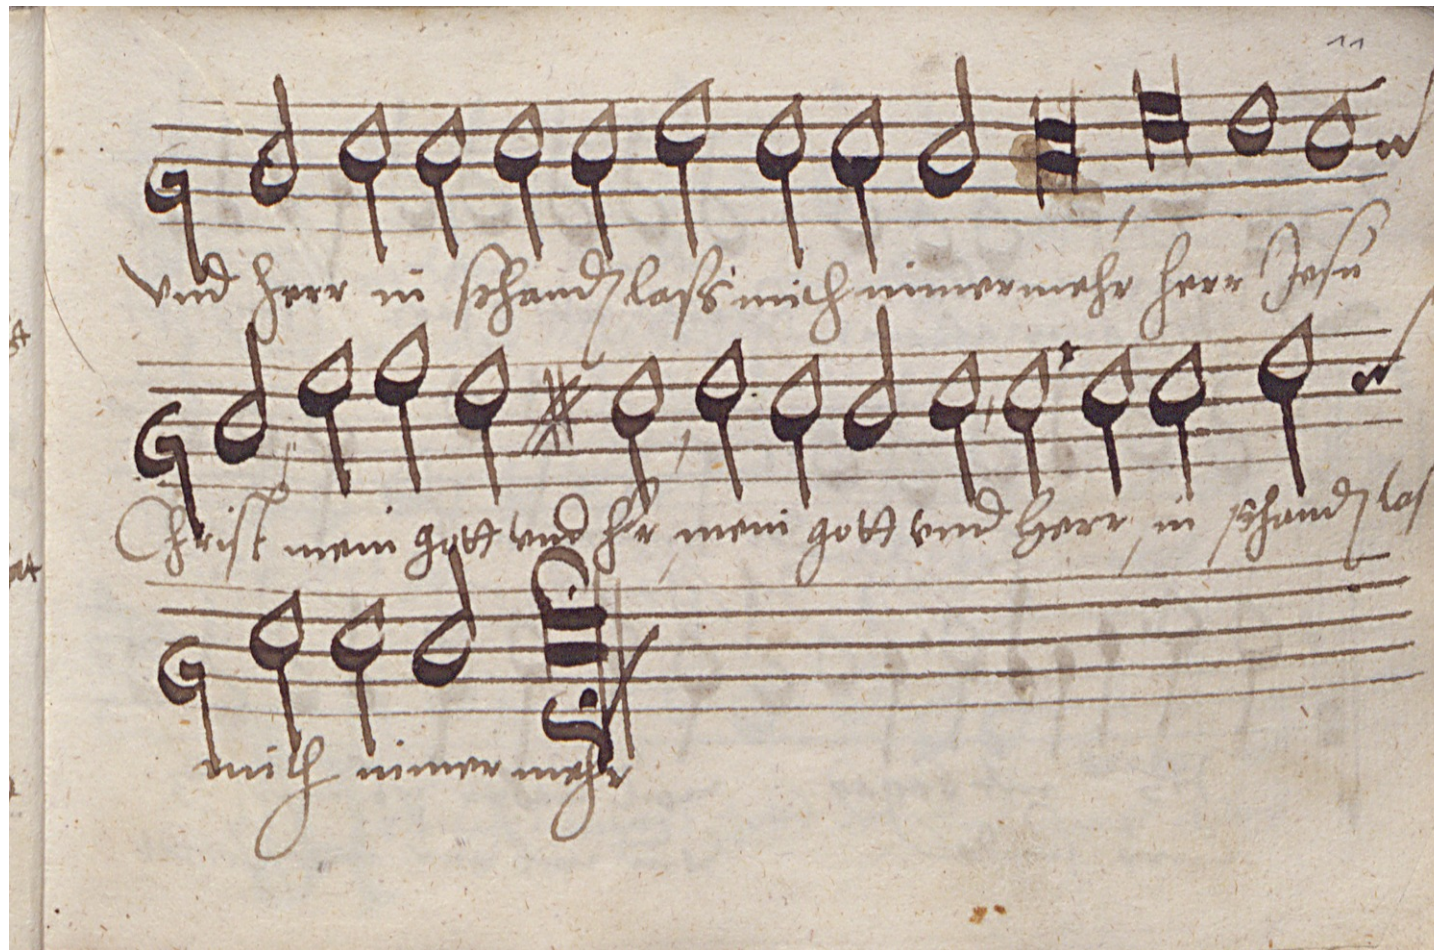 11
vnd herr in schand lass mich nimermehr herr Jesu
Christ mein gott vnd h'r, mein gott vnd Herr, in schand las
mich nimer mehr